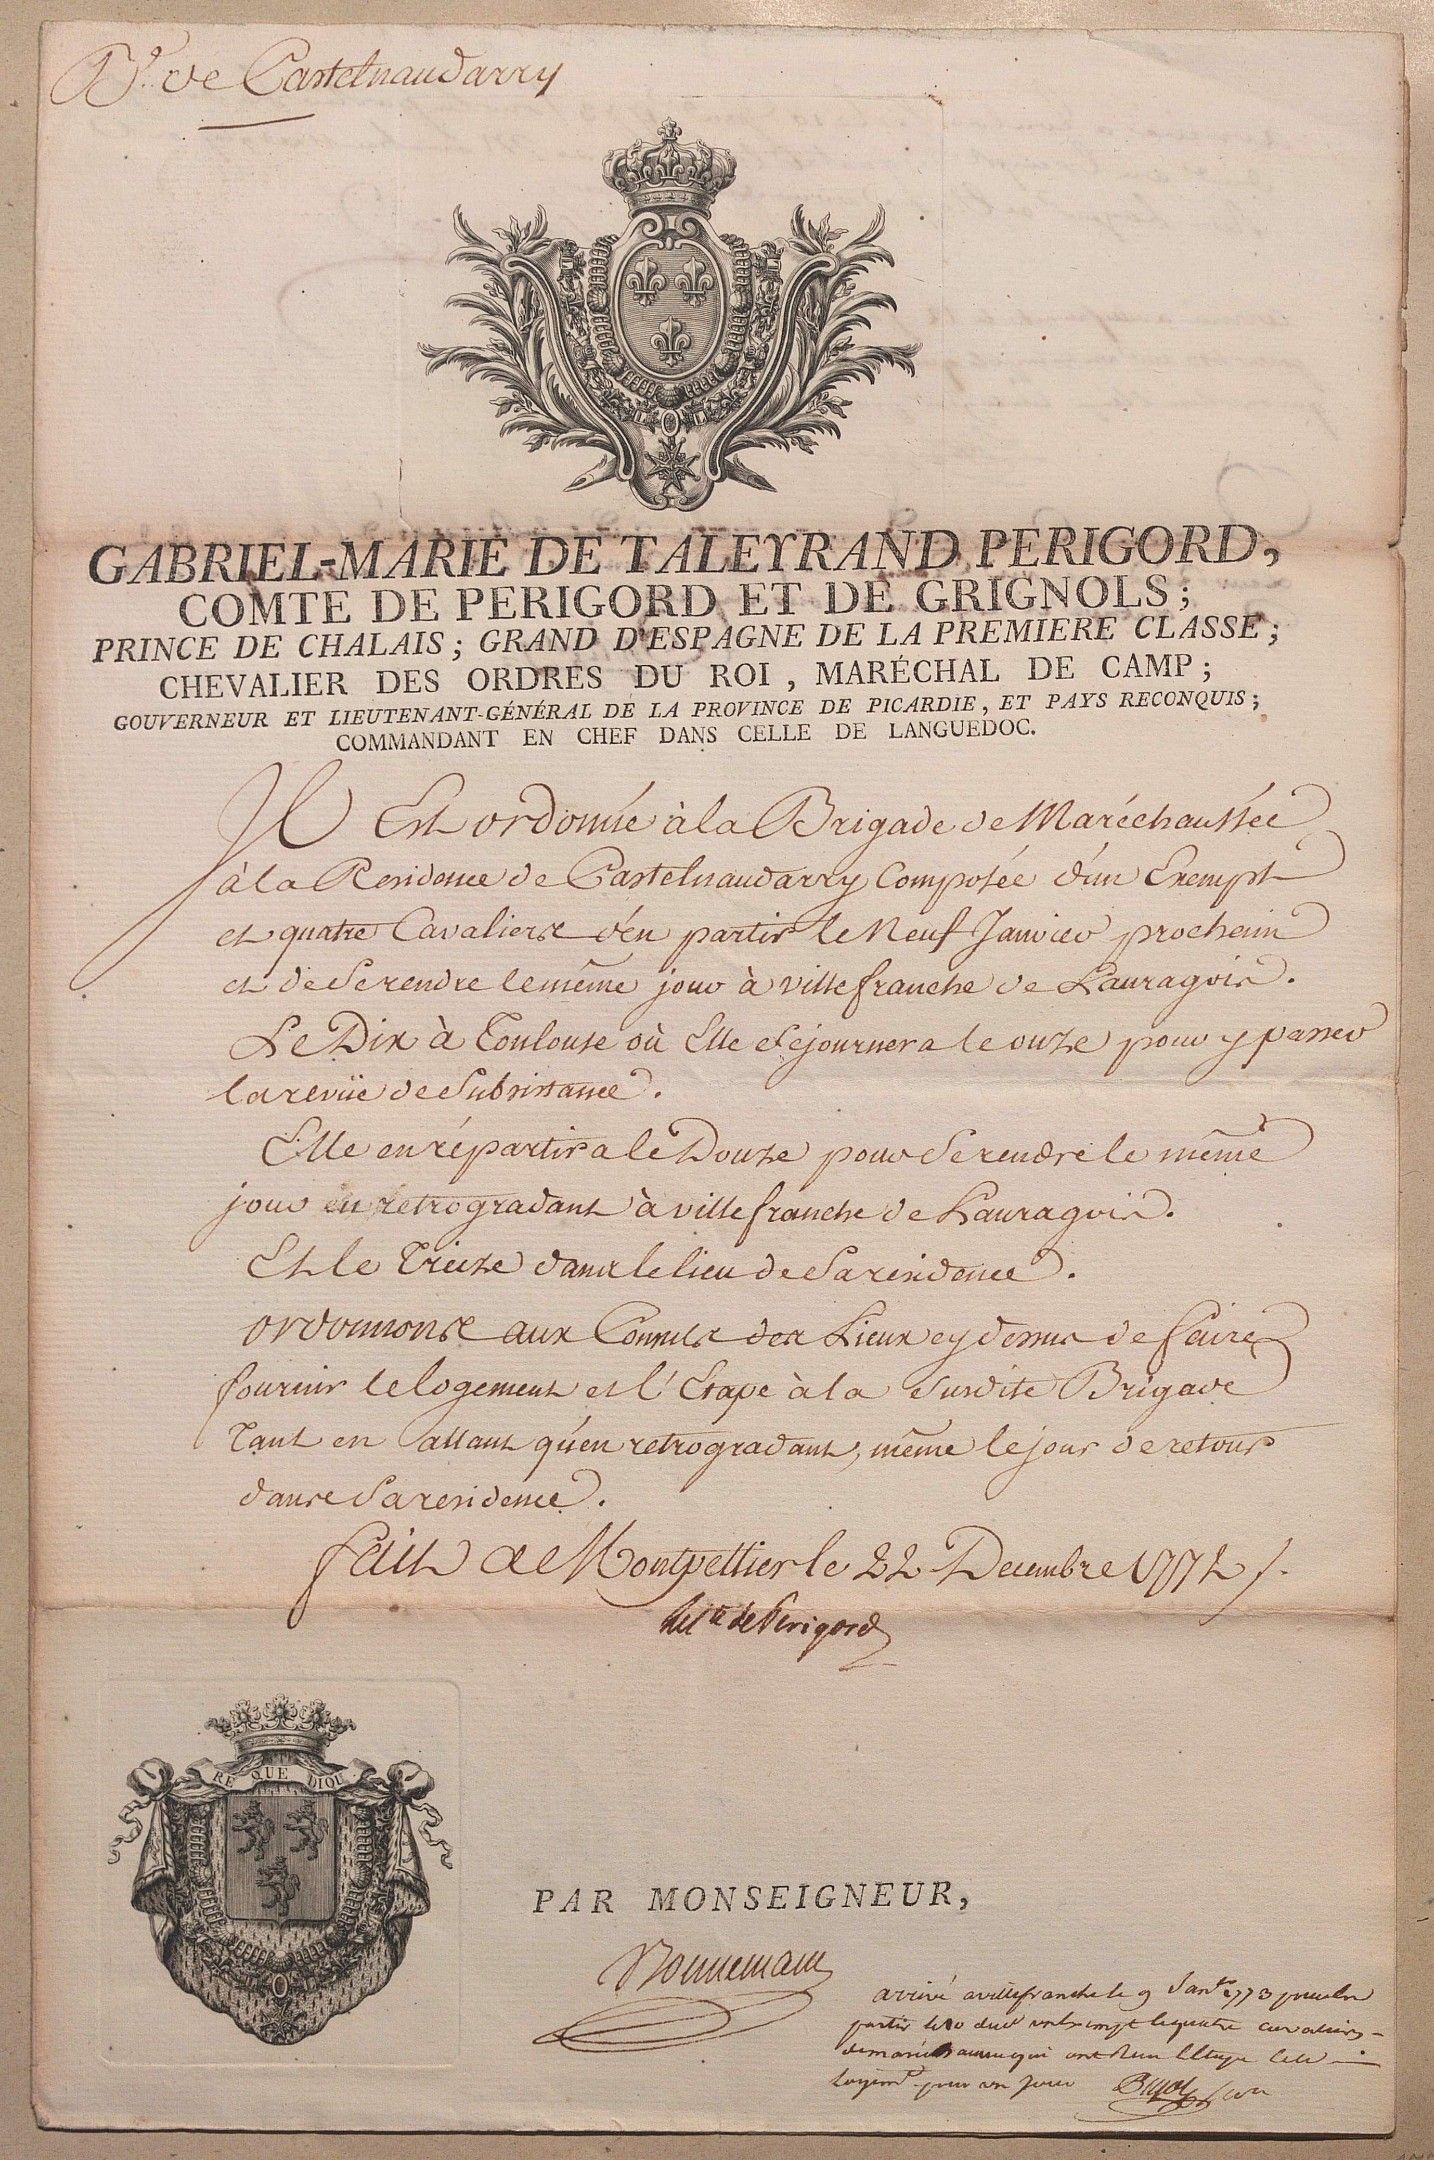 B.de de Castelnaudarry
GABRIEL-MARIE DE TALEYRAND PERIGORD,
COMTE DE PERIGORD ET DE GRIGNOLS;
PRINCE DE CHALAIS; GRAND D'ESPAGNE DE LA PREMIERE CLASSE;
CHEVALIER DES ORDRES DU ROI, MARÉCHAL DE CAMP;
GOUVERNEUR ET LIEUTENANT-GÉNÉRAL DE LA PROVINCE DE PICARDIE, ET PAYS RECONQUIS;
COMMANDANT EN CHEF DANS CELLE DE LANGUEDOC.
Il Est ordonné à la Brigade de Maréchaussée
à la Residence de Castelnaudarry Composée d'un Exempt
et quatre Cavaliers d'en partir le Neuf Janvier prochain
et de Se rendre le même jour à villefranche de Lauragois.
Le Dix à Toulouse où Elle Séjournera le onze pour y passer
la revüe de Subsistance.
Elle en répartira le Douze pour Se rendre le même
jour en retrogradant à villefranche de Lauragois.
Et le Treize dans le lieu de Sa residence.
ordonnons aux Consuls des Lieux cy dessus de faire
fournir le logement et l'Etape à la Susdite Brigade
Tant en allant qu'en retrogradant, même le jour de retour
dans Sa residence.
fait a Montpellier le 22 Decembre 1772 /.
le c.te de Perigord
RE QUE DIOU
PAR MONSEIGNEUR,
Bonnemain
arrivé a villefranche le 9 Janv.r 1773 pour en
partir le 10 dud. un Exempt le quatre cavaliers
de marechaussee qui ont Reçu l'Etape et le
logem.t pour un jour